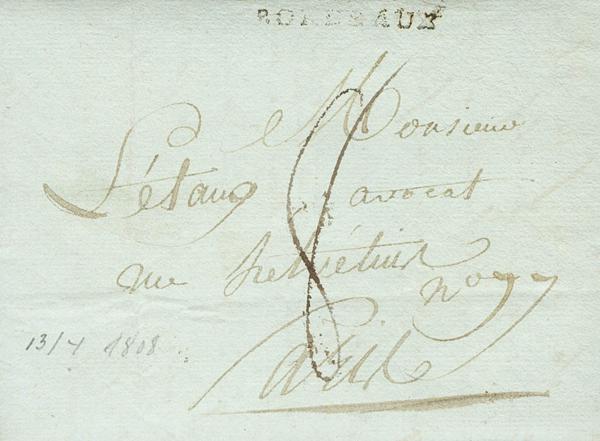 BORDEAUX
8
Monsieur
Létang avocat
rue helvétius
n° 77
Paris
13/4 1808